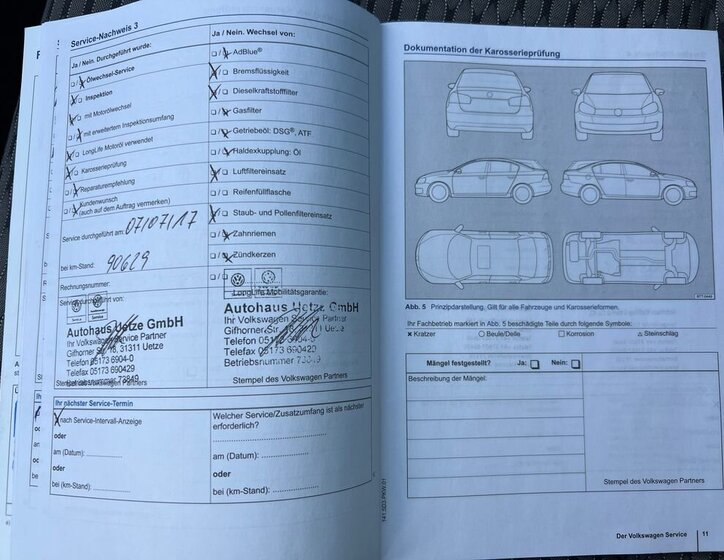 Service-Nachweis 3
Ja / Nein. Durchgeführt wurde:
Ölwechsel-Service
Inspektion
mit Motorölwechsel
mit erweitertem Inspektionsumfang
LongLife Motoröl verwendet
Karosserieprüfung
Reparaturempfehlung
Kundenwunsch
(auch auf dem Auftrag vermerken)
Service durchgeführt am: 07/07/17
bei km-Stand: 90629
Rechnungsnummer:
Service durchgeführt von:
Autohaus Uetze GmbH
Ihr Volkswagen Service Partner
Gifhorner Str. 48, 31311 Uetze
Telefon 05173 6904-0
Telefax 05173 690429
Betriebsnummer 73849
Stempel des Volkswagen Partners
Ja / Nein. Wechsel von:
AdBlue®
Bremsflüssigkeit
Dieselkraftstofffilter
Gasfilter
Getriebeöl: DSG®, ATF
Haldexkupplung: Öl
Luftfiltereinsatz
Reifenfüllflasche
Staub- und Pollenfiltereinsatz
Zahnriemen
Zündkerzen
LongLife Mobilitätsgarantie:
Autohaus Uetze GmbH
Ihr Volkswagen Service Partner
Gifhorner Str.
Uetze
Telefon 05173
Telefax 05173 690429
Betriebsnummer
Stempel des Volkswagen Partners
Ihr nächster Service-Termin
nach Service-Intervall-Anzeige
oder
am (Datum):
oder
bei (km-Stand):
Welcher Service/Zusatzumfang ist als nächster
erforderlich?
am (Datum):
oder
bei (km-Stand):
Dokumentation der Karosserieprüfung
Abb. 5 Prinzipdarstellung, Gilt für alle Fahrzeuge und Karosserieformen.
Ihr Fachbetrieb markiert in Abb. 5 beschädigte Teile durch folgende Symbole:
Kratzer
Beule/Delle
Korrosion
Steinschlag
Mängel festgestellt? Ja: Nein:
Beschreibung der Mängel:
Stempel des Volkswagen Partners
Der Volkswagen Service 11